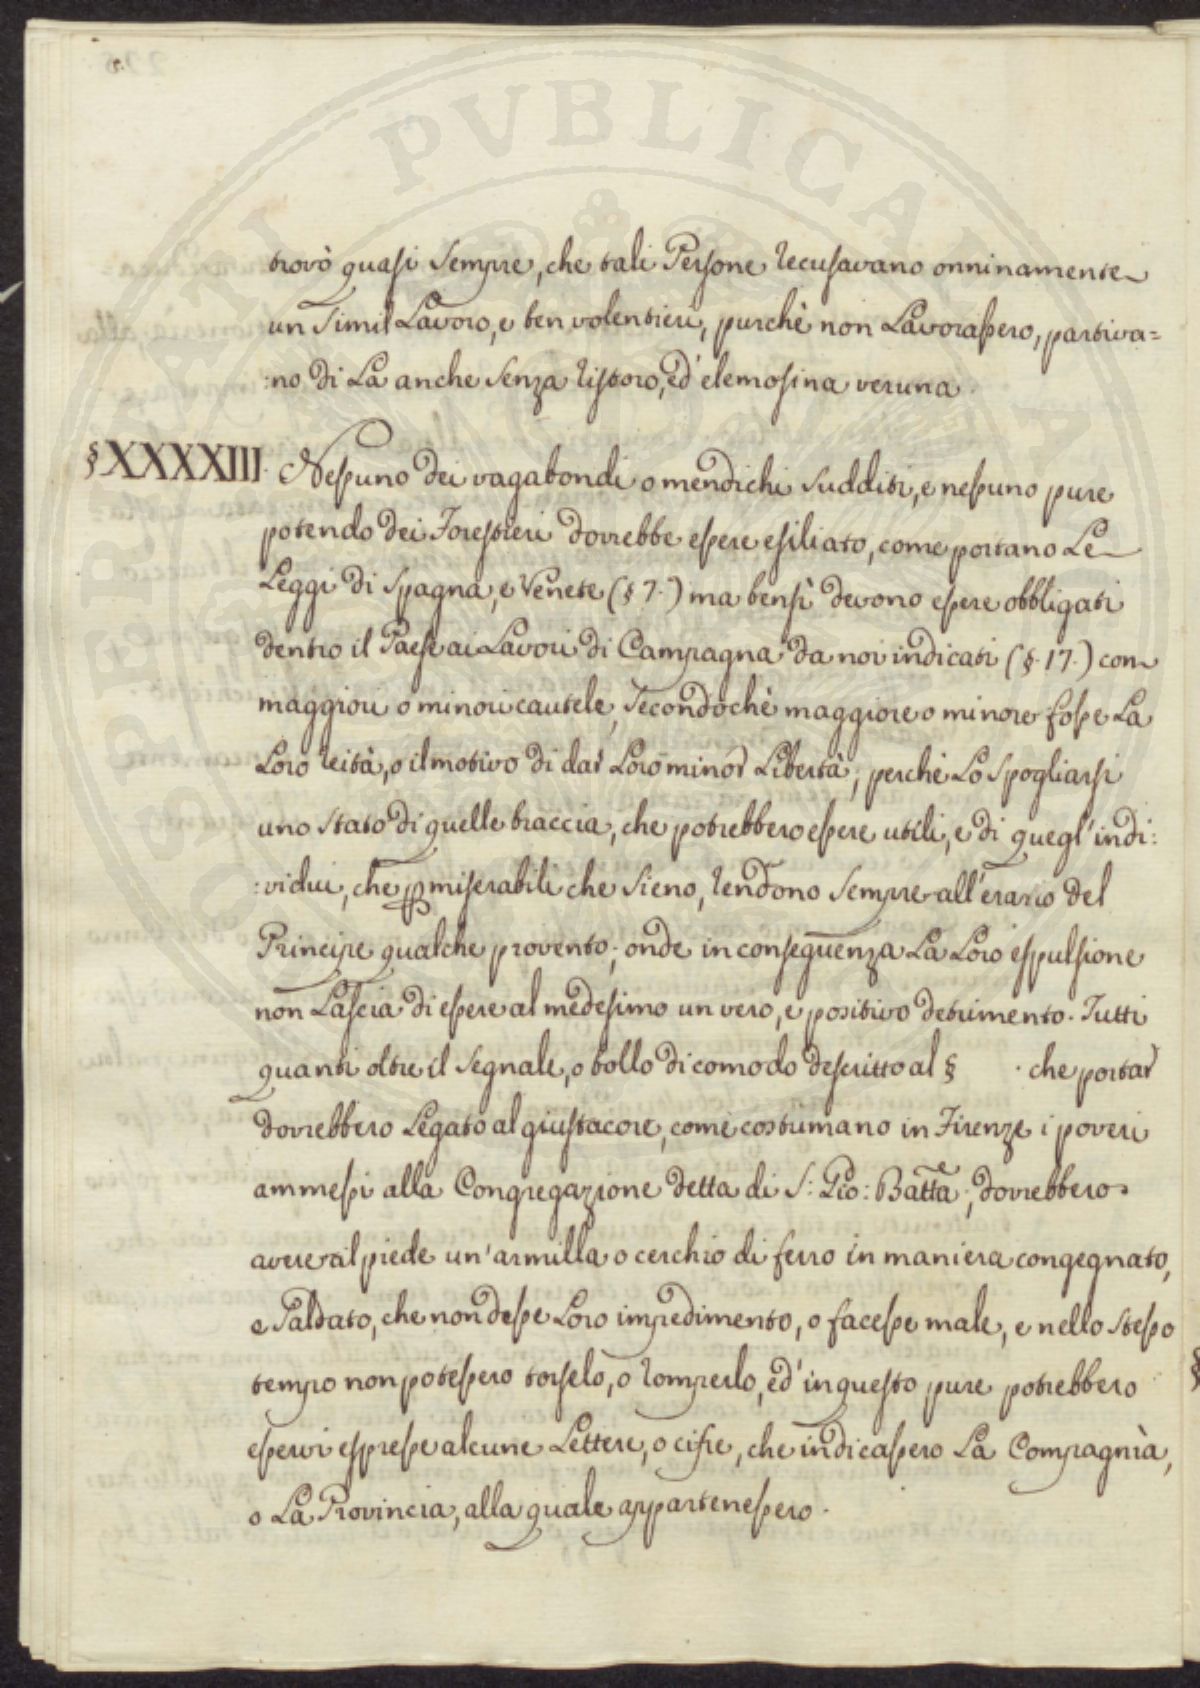 trovò quasi sempre, che tali Persone recusavano onninamente
un simil Lavoro, e ben volentieri, purchè non Lavorassero, partiva=
:no di La anche senza ristoro, ed' elemosina veruna.
§XXXXIII. Nessuno dei vagabondi o mendichi sudditi, e nessuno pure
potendo dei Forestieri dovrebbe essere esiliato, come portano Le
Leggi di Spagna, e Venete (§ 7.) ma bensì devono essere obbligati
dentro il Paese ai Lavori di Campagna da noi indicati (§. 17.) con
maggiori o minori cautele, secondochè maggiore o minore fosse La
Loro reità, o il motivo di dar Loro minor Libertà; perchè Lo spogliarsi
uno stato di quelle braccia, che potrebbero essere utili, e di quegl'indi:
:vidui, che miserabili che sieno, rendono sempre all'erario del
Principe qualche provento; onde in conseguenza La Loro espulsione
non Lascia di essere al medesimo un vero, e positivo detrimento. Tutti
quanti oltre il segnale, o bollo di comodo descritto al § . che portar
dovrebbero Legato al giustacore, come costumano in Firenze i poveri
ammessi alla Congregazione detta di S: Gio: Batta; dovrebbero
avere al piede un'armilla o cerchio di ferro in maniera congegnato,
e saldato, che non desse Loro impedimento, o facesse male, e nello stesso
tempo non potessero torselo, o romperlo, ed' in questo pure potrebbero
esservi espresse alcune Lettere, o cifre, che indicassero La Compagnìa,
o La Provincia, alla quale appartenessero.
SPERRATI PVBLICAE